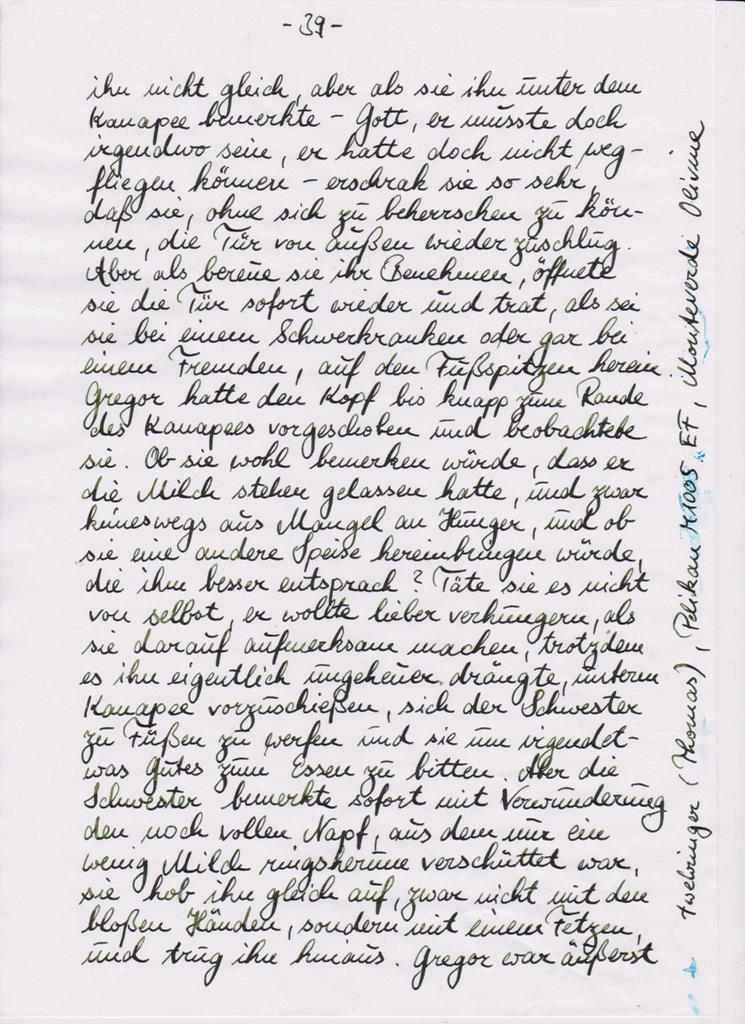 - 39 -
ihn nicht gleich, aber als sie ihn unter dem
Kanapee bemerkte – Gott, er musste doch
irgendwo sein, er hatte doch nicht weg-
fliegen können – erschrak sie so sehr,
daß sie, ohne sich zu beherrschen zu kön-
nen, die Tür von außen wieder zuschlug.
Aber als bereue sie ihr Benehmen, öffnete
sie die Tür sofort wieder und trat, als sei
sie bei einem Schwerkranken oder gar bei
einem Fremden, auf den Fußspitzen herein
Gregor hatte den Kopf bis knapp zum Rande
des Kanapees vorgeschoben und beobachtete
sie. Ob sie wohl bemerken würde, dass er
die Milch stehen gelassen hatte, und zwar
keineswegs aus Mangel an Hunger, und ob
sie eine andere Speise hereinbringen würde,
die ihm besser entsprach? Täte sie es nicht
von selbst, er wollte lieber verhungern, als
sie darauf aufmerksam machen, trotzdem
es ihn eigentlich ungeheuer drängte, unterm
Kanapee vorzuschießen, sich der Schwester
zu Füßen zu werfen und sie um irgendet-
was Gutes zum Essen zu bitten. Aber die
Schwester bemerkte sofort mit Verwunderung
den noch vollen Napf, aus dem nur ein
wenig Milch ringsherum verschüttet war,
sie hob ihn gleich auf, zwar nicht mit den
bloßen Händen, sondern mit einem Fetzen,
und trug ihn hinaus. Gregor war äußerst
twehringer (Thomas), Pelikan M1005 EF, Monteverde Olivine